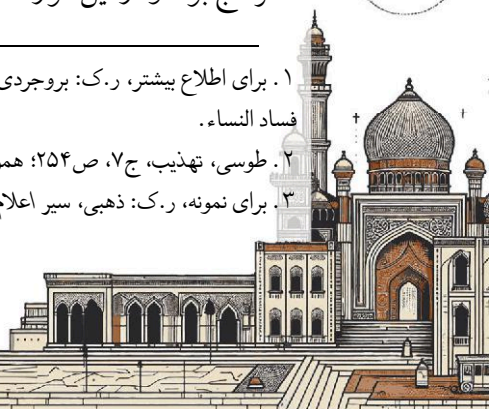 ۱. برای اطلاع بیشتر، ر.ک: بروجردی
فساد النساء.
۲. طوسی، تهذیب، ج۷، ص۲۵۴؛
۳. برای نمونه، ر.ک: ذهبی، سیر اعلام